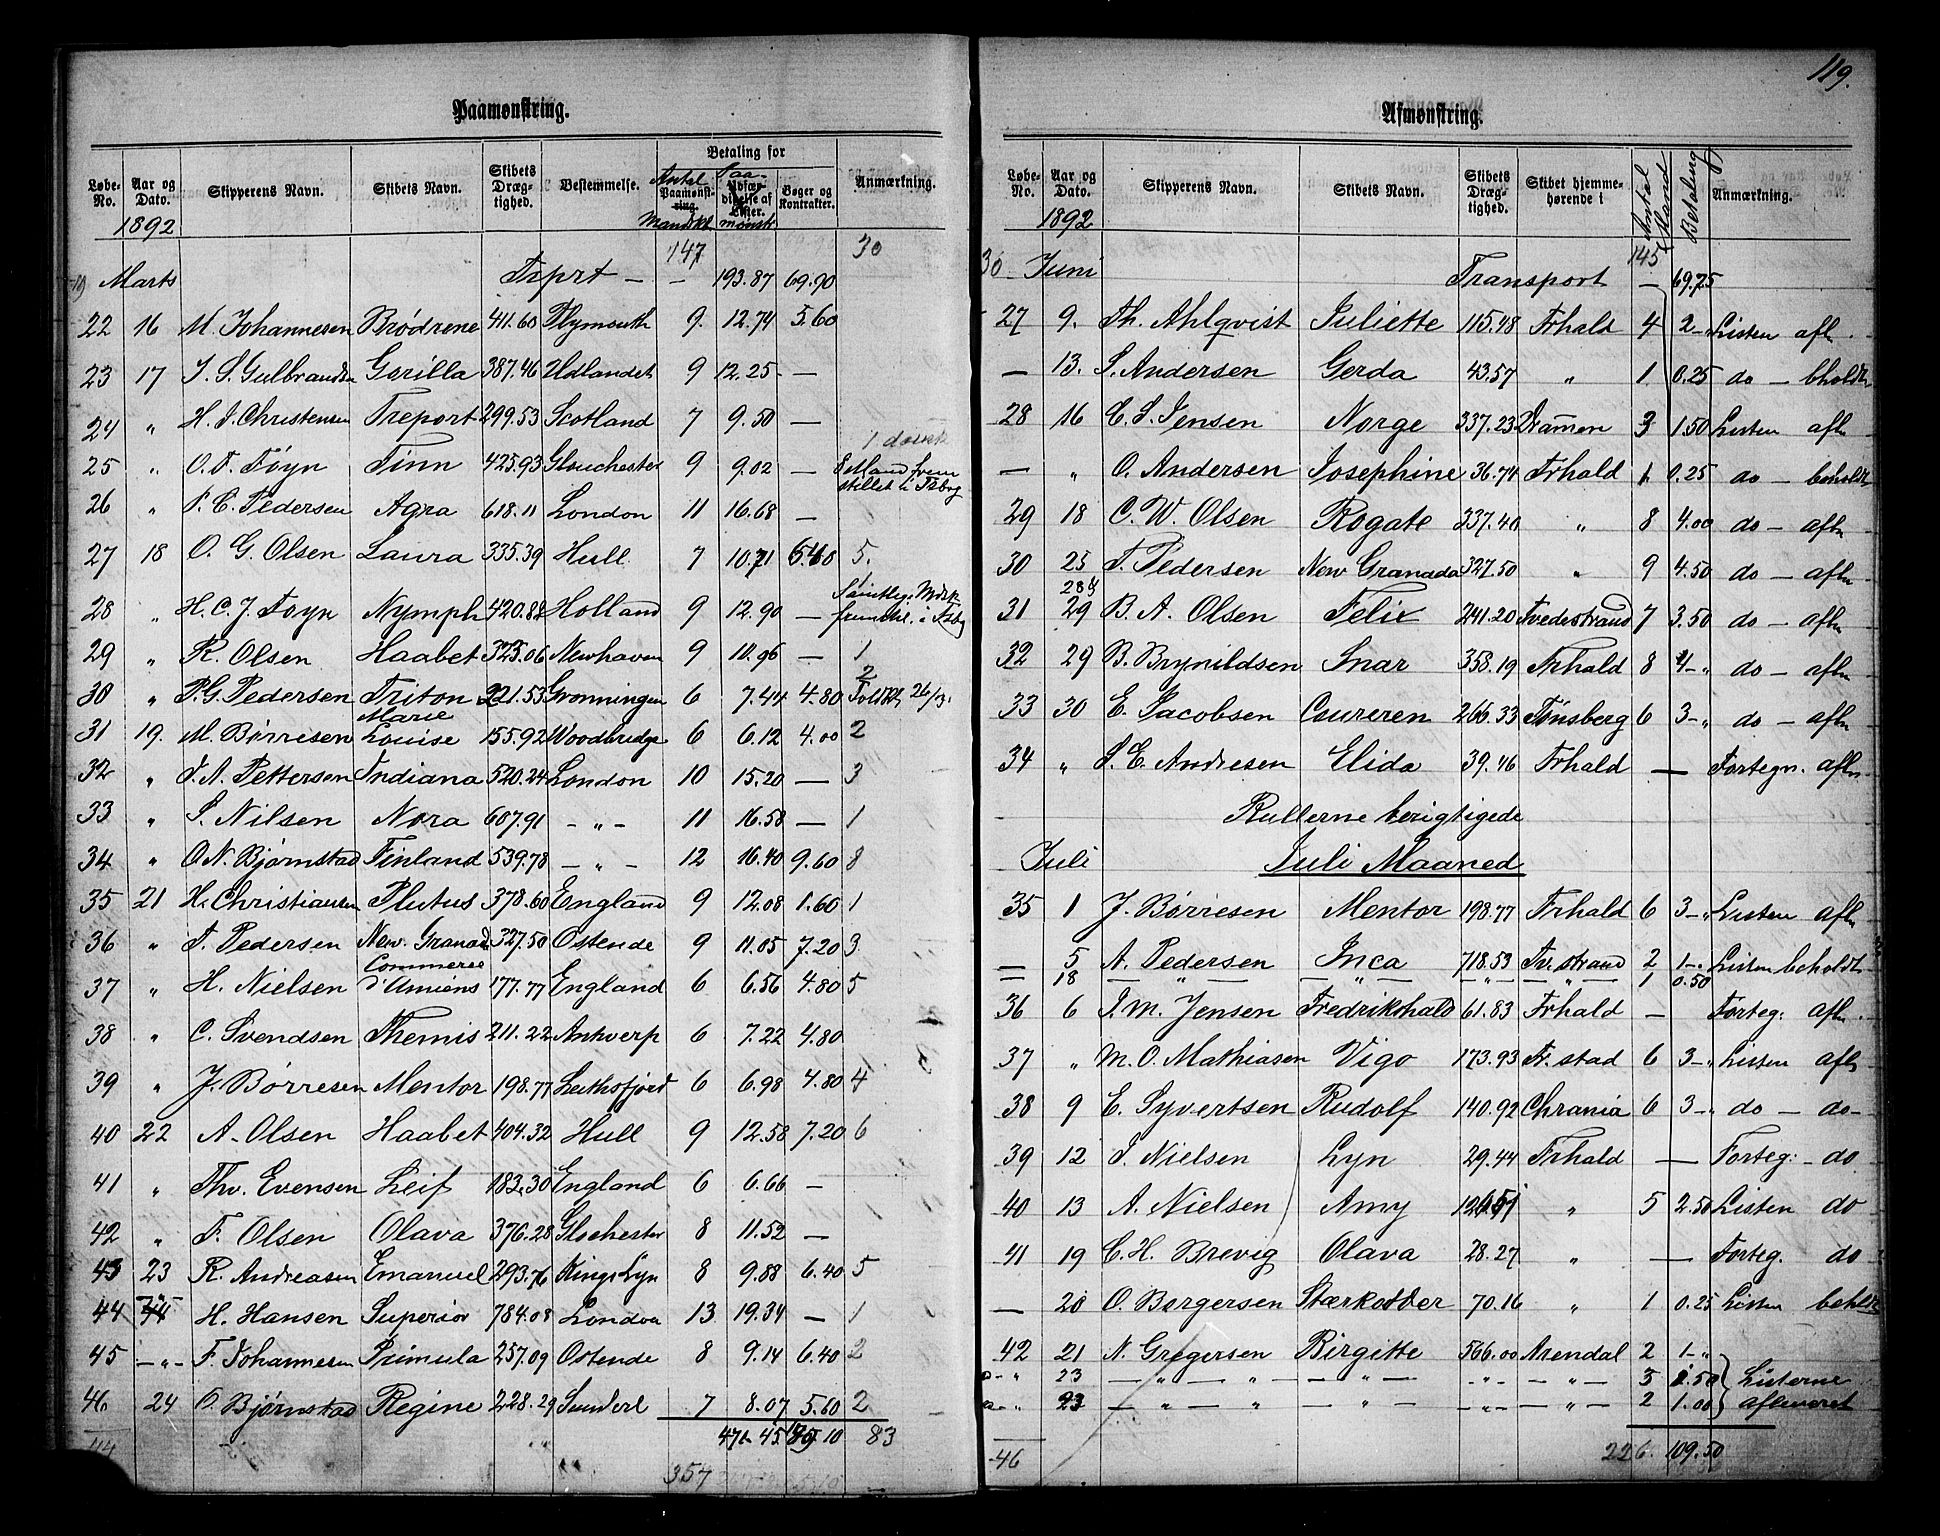 119.
Paamønstring.
Løbe-No. Aar og Dato. Skipperens Navn. Skibets Navn. Skibets Drægtighed. Bestemmelse. Antal Paamønstring. Mandsk. Betaling for Paamønstr. Udfærdigelse af Lister. Bøger og Kontrakter. Anmærkning.
1892
147 30
19 Marts Trprt — — 193.87 69.90
22 16 M. Johannesen Brødrene 411.60 Plymouth 9. 12.74 5.60
23 17 J. S. Gulbrandsen Gorilla 387.46 Udlandet 9 12.25 —
24 " H. J. Christensen Treport 299.53 Scotland 7 9.50 —
25 " O. T. Føyn Finn 425.93 Glouchester 9 9.02 — 1 dansk
26 " P. C. Pedersen Agra 618.11 London 11 16.68 —
27 18 O. G. Olsen Laura 335.39 Hull 7 10.71 5.
28 " H. C. J. Foyn Nymph 420.88 Holland 9 12.90 — Samtlige Mdsk.
29 " R. Olsen Haabet 323.06 Newhaven 9 11.96 — 1
30 " P. G. Pedersen Triton 221.53 Gronningen 6 7.44 4.80 2 Toldkl. 26/3.
31 19. M. Børresen Marie Louise 155.92 Woodbridge 6 6.12 4.00 2
32 " T. A. Pettersen Indiana 520.24 London 10 15.20 — 3
33 " S. Nilsen Nora 607.91 — " — 11 16.58 — 1
34 " O. N. Bjørnstad Finland 539.78 — " — 12 16.40 9.60 8
35 21 H. Christiansen Plutus 378.60 England 9 12.08 1.60 1
36 " T. Pedersen New. Granad. 327.50 Ostende 9 11.05 7.20 3
37 " H. Nielsen Commerce d'Amiens 177.77 England 6 6.56 4.80 5
38 " C. Svendsen Themis 211.22 Antverp 6 7.22 4.80
39 " J. Børresen Mentor 198.77 Leithsfjord 6 6.98 4.80 4
40 22 A. Olsen Haabet 404.32 Hull 9 12.58 7.20 6
41 " Thv. Evensen Leif 183.30 England 6 6.66 —
42 " F. Olsen Olava 376.28 Glochester 8 11.52 —
43 23 R. Andreasen Emanuel 293.76 Kings Lyn 8 9.88 6.40 5
44 " H. Hansen Superior 784.08 London 13 19.34 — 1
45 — " — F. Johannesen Primula 257.09 Ostende 8 9.14 6.40 2
46 24 O. Bjørnstad Regine 228.29 Sunderl 7 8.07 5.60 2
83
357
Afmønstring.
Løbe-No. Aar og Dato. Skipperens Navn. Skibets Navn. Skibets Drægtighed. Skibet hjemmehørende i Antal Mand Betaling Anmærkning.
1892
30 Juni Transport 145 — 69.75
27 9. Th. Ahlqvist Juliette 115.48 Frhald 4 2 — " Listen afl.
— 13. S. Andersen Gerda 43.57 " 1 0.25 do — bholdt
28 16 C. S. Jensen Norge 337.23 Drammen 3 1.50 Listen afl.
— " O. Andersen Josephine 36.74 Frhald 1 0.25 do — beholdt
29 18 C. W. Olsen Rogate 337.40 " 8 4.00 do — afl.
30 25 T. Pedersen New Granada 327.50 " 9 4.50 do — afl.
31 28 & 29 B. A. Olsen Felix 241.20 Tvedestrand 7 3.50 do — afl.
32 29 B. Brynildsen Snar 358.19 Frhald 8 4 — " do — afl.
33 30 E. Jacobsen Coureren 266.33 Tønsberg 6 3 — " do — afl.
34 " S. E. Andresen Elida 39.46 Frhald — Fortegn. afl.
Rullerne berigtigede
Juli Juli Maaned
35 1 J. Børresen Mentor 198.77 Frhald 6 3 — " Listen afl.
— 5 A. Pedersen Inca 718.53 Tv.strand 2 1 — " Listen beholdt
— 18 — " — — " — — " — — " — 1 0.50
36 6 J. M. Jensen Fredrikshald 61.83 Frhald — Forteg: afl.
37 " M. O. Mathiasen Vigo 173.93 Fr.stad 6 3 — " Listen afl.
38 9 E. Syvertsen Rudolf 140.92 Chrania 6 3 — " do — do —
39 12 J. Nielsen Lyn 29.44 Frhald — Forteg: — do
40 13 A. Nielsen Amy " 5 2.50 Listen do
41 19 C. H. Brevig Olava 28.27 " — Forteg. do
— 20 O. Borgersen Stærkodder 70.16 " 1 0.25 Listen behldt
42 21 N. Gregersen Birgitte 566.00 Arendal 2 1 — "
— " 23 — " — " — " — " — — " — — " — 3 1.50 Listerne
— " 23 — " — " — " — " — — " — — " — 2 1.00 afleveret
46 226. 109.50